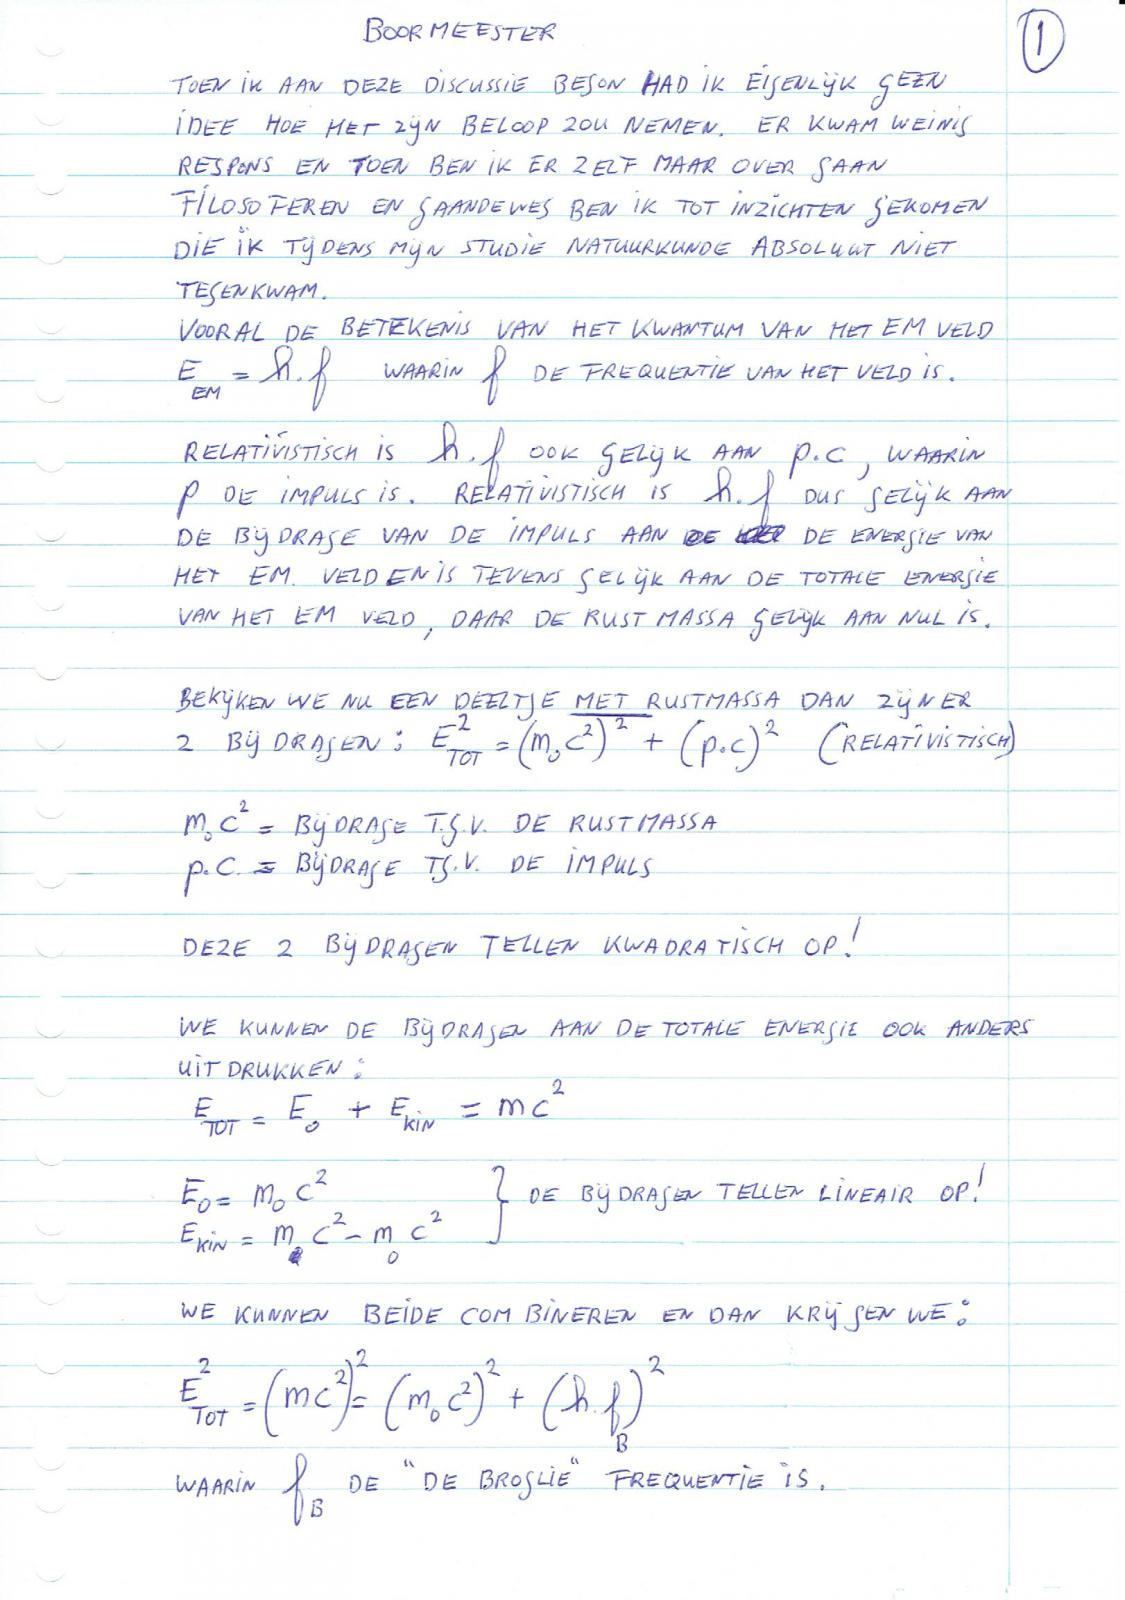 BOORMEESTER
1
TOEN IK AAN DEZE DISCUSSIE BEGON HAD IK EIGENLIJK GEEN
IDEE HOE HET ZIJN BELOOP ZOU NEMEN. ER KWAM WEINIG
RESPONS EN TOEN BEN IK ER ZELF MAAR OVER GAAN
FILOSOFEREN EN GAANDEWEG BEN IK TOT INZICHTEN GEKOMEN
DIE IK TIJDENS MIJN STUDIE NATUURKUNDE ABSOLUUT NIET
TEGENKWAM.
VOORAL DE BETEKENIS VAN HET KWANTUM VAN HET EM VELD
E_EM = h.f WAARIN f DE FREQUENTIE VAN HET VELD IS.
RELATIVISTISCH IS h.f OOK GELIJK AAN p.c, WAARIN
p DE IMPULS IS. RELATIVISTISCH IS h.f DUS GELIJK AAN
DE BIJDRAGE VAN DE IMPULS AAN DE ENERGIE VAN
HET EM. VELD EN IS TEVENS GELIJK AAN DE TOTALE ENERGIE
VAN HET EM VELD, DAAR DE RUSTMASSA GELIJK AAN NUL IS.
BEKIJKEN WE NU EEN DEELTJE MET RUSTMASSA DAN ZIJN ER
2 BIJDRAGEN: E_TOT² = (m₀c²)² + (p.c)² (RELATIVISTISCH)
m₀c² = BIJDRAGE T.G.V. DE RUSTMASSA
p.c. = BIJDRAGE T.G.V. DE IMPULS
DEZE 2 BIJDRAGEN TELLEN KWADRATISCH OP!
WE KUNNEN DE BIJDRAGEN AAN DE TOTALE ENERGIE OOK ANDERS
UITDRUKKEN:
E_TOT = E₀ + E_KIN = mc²
E₀ = m₀c² } DE BIJDRAGEN TELLEN LINEAIR OP!
E_KIN = mc² - m₀c²
WE KUNNEN BEIDE COMBINEREN EN DAN KRIJGEN WE:
E_TOT² = (mc²)² = (m₀c²)² + (h.f_B)²
WAARIN f_B DE "DE BROGLIE" FREQUENTIE IS.